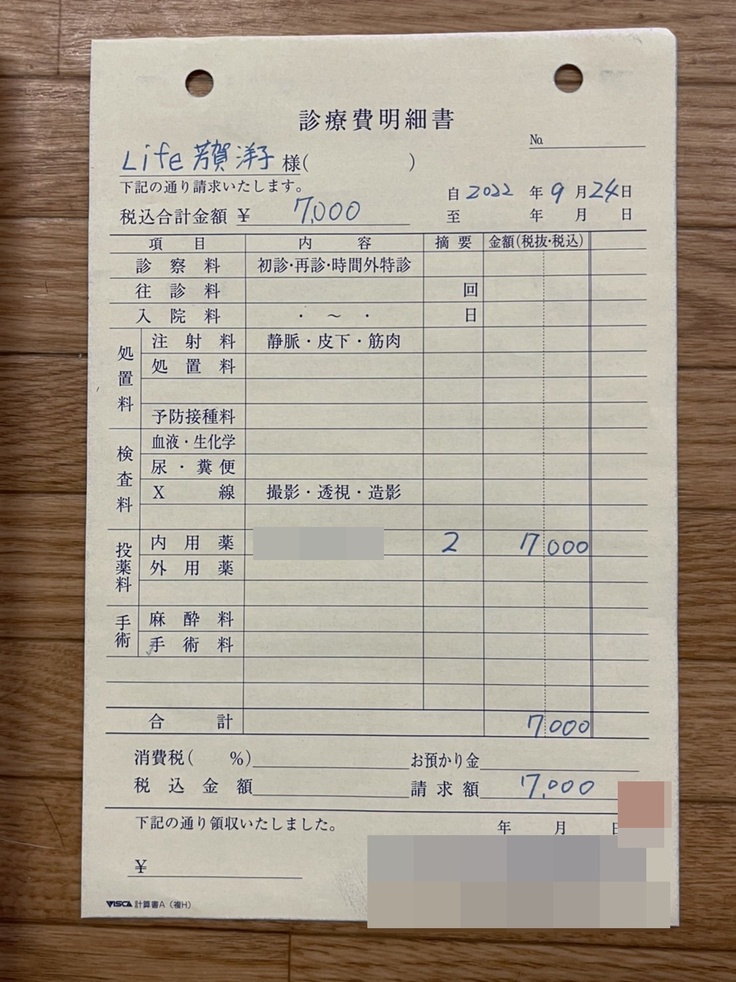 診療費明細書
No.
Life 芳賀 洋子 様( )
下記の通り請求いたします。
自 2022 年 9 月 24 日
税込合計金額 ¥ 7,000
至 年 月 日
項目 内容 摘要 金額(税抜・税込)
診察料 初診・再診・時間外特診
往診料 回
入院料 ・ ～ ・ 日
処置料
注射料 静脈・皮下・筋肉
処置料
予防接種料
検査料
血液・生化学
尿・糞便
X線 撮影・透視・造影
投薬料
内用薬 2 7 000
外用薬
手術
麻酔料
手術料
合計 7000
消費税( %) お預かり金
税込金額 請求額 7,000
下記の通り領収いたしました。 年 月
¥
VISCA 計算書A（複H）